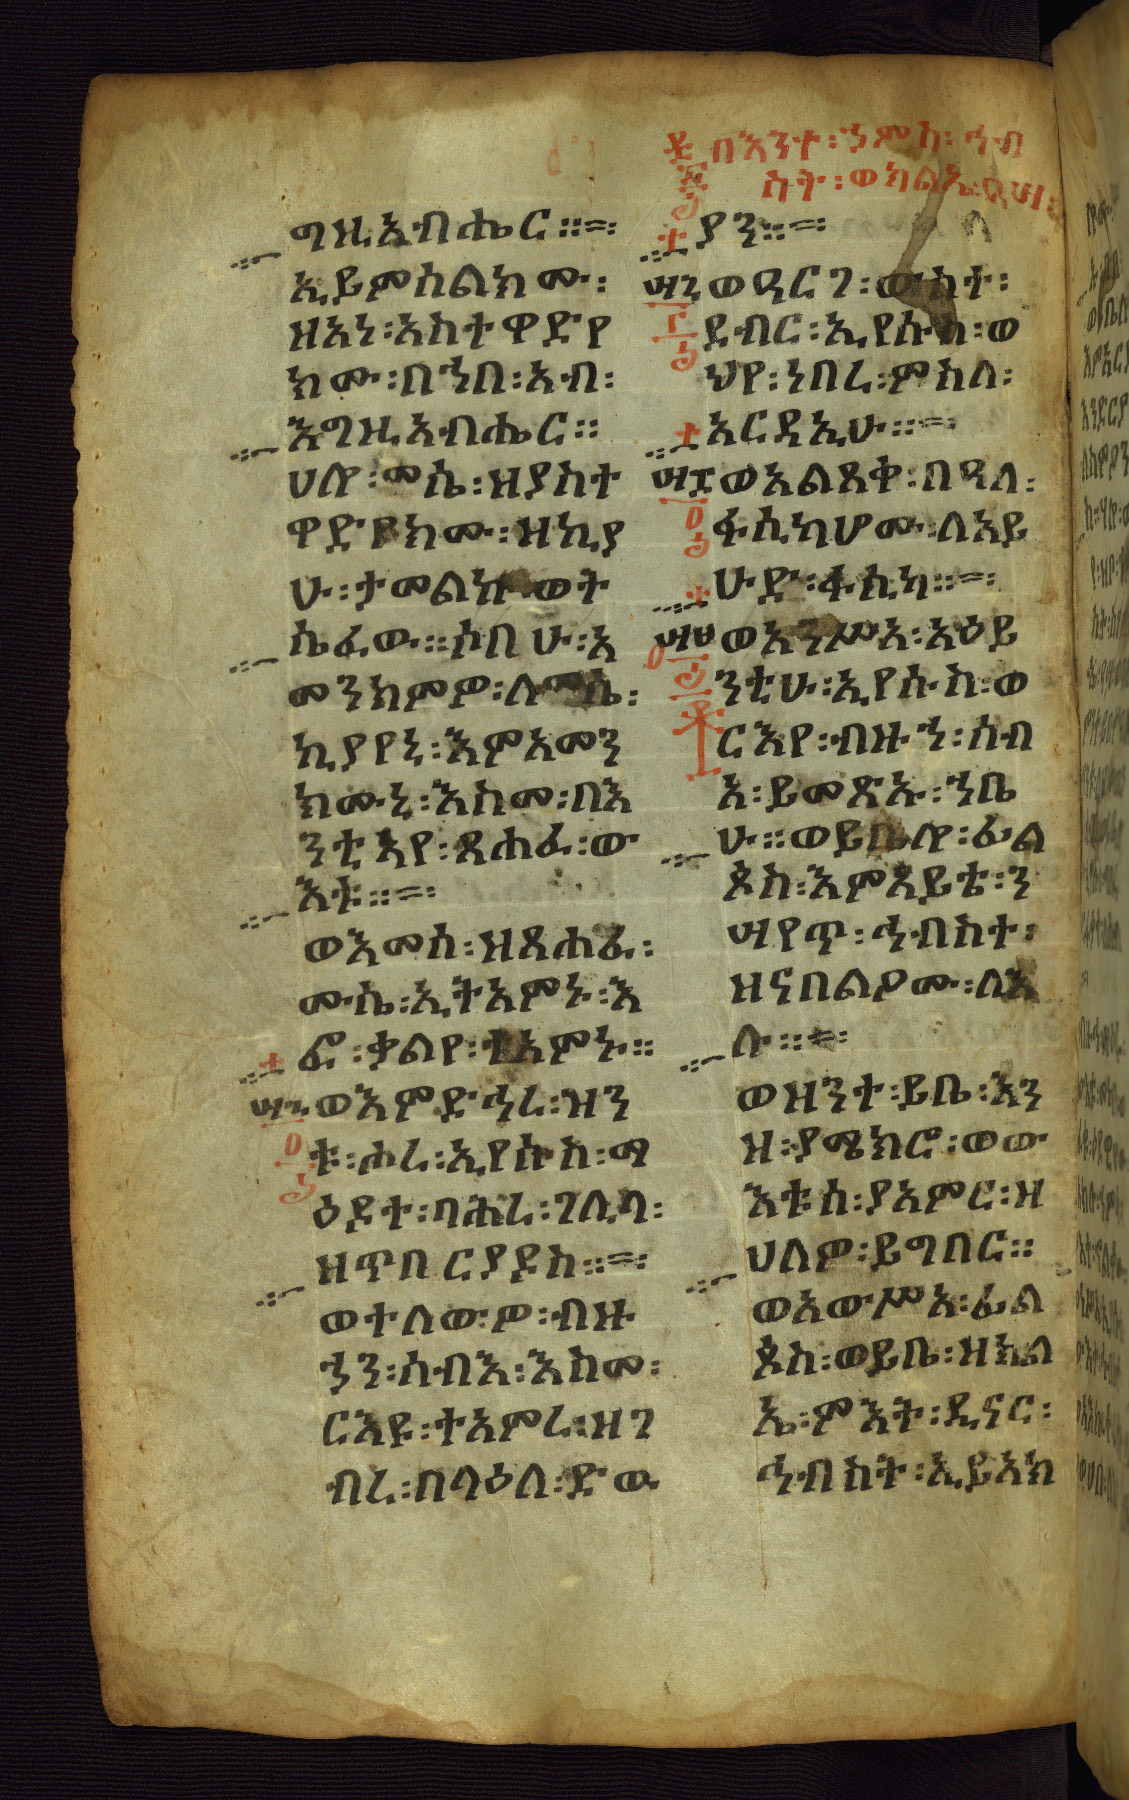 በእንተ፡ኀምስ፡ኅብ
ስት፡ወክልኤ፡ዓሣ፡
ግዚአብሔር፡፡=፡
ኢይምስልክሙ፡
ዘአነ፡አስተዋድየ
ክሙ፡በኀበ፡አብ፡
እግዚአብሔር፡፡
ሀሎ፡ሙሴ፡ዘያስተ
ዋድየክሙ፡ዘኪያ
ሁ፡ታመልኩ፡ወት
ሴፈው፡፡ሶበሁ፡አ
መንክምዎ፡ለሙሴ፡
ኪያየኒ፡እምአመን
ክሙኒ፡እስመ፡በእ
ንቲአየ፡ጸሐፈ፡ው
እቱ፡፡=፡
ወእመሰ፡ዝጸሐፊ፡
ሙሴ፡ኢትአምኑ፡እ
ፎ፡ቃልየ፡ተአምኑ፡፡
ወእምድኅረ፡ዝን
ቱ፡ሖረ፡ኢየሱስ፡ማ
ዕዶተ፡ባሕረ፡ገሊላ፡
ዘጥበርያዶስ፡፡=፡
ወተለውዎ፡ብዙ
ኃን፡ሰብእ፡እስመ፡
ርእዩ፡ተአምረ፡ዘገ
ብረ፡በላዕለ፡ድዉ
ያን፡፡=፡
ወዓርገ፡ውስተ፡
ደብር፡ኢየሱስ፡ወ
ህየ፡ነበረ፡ምስለ፡
አርዳኢሁ፡፡=፡
ወአልጸቀ፡በዓለ፡
ፋሲካሆሙ፡ለአይ
ሁድ፡ፋሲካ፡፡=፡
ወአንሥአ፡አዕይ
ንቲሁ፡ኢየሱስ፡ወ
ርእየ፡ብዙኀ፡ሰብ
አ፡ይመጽኡ፡ኀቤ
ሁ፡፡ወይቤሎ፡ፊል
ጶስ፡እምአይቴ፡ን
ሣየጥ፡ኅብስተ፡
ዘናበልዖሙ፡ለእ
ሉ፡፡=፡
ወዘንተ፡ይቤ፡እን
ዘ፡ያሜክሮ፡ወው
እቱሰ፡ያአምር፡ዘ
ህለዎ፡ይግበር፡፡
ወአውሥአ፡ፊል
ጶስ፡ወይቤ፡ዘክል
ኤ፡ምእት፡ዲናር፡
ኅብስት፡ኢይአክ